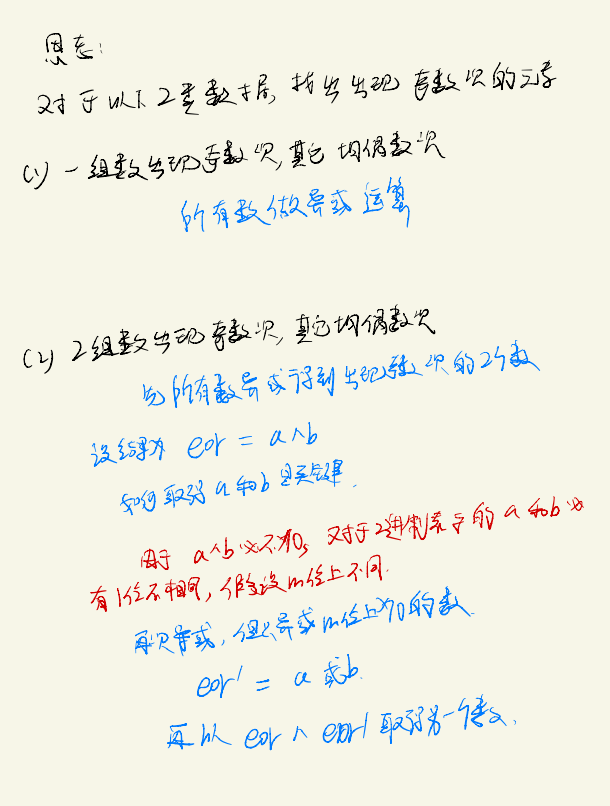 思志:
对于以下2类数据, 找出出现奇数次的元素
(1) 一组数出现奇数次, 其它均偶数次
所有数做异或运算
(2) 2组数出现奇数次, 其它均偶数次
先所有数异或得到出现奇数次的2个数
设结果为 eor = a∧b
如何取得a和b是关键.
由于 a∧b必不为0, 又对于2进制表示的a和b必
有1位不相同, 假设m位上不同.
再次异或, 但只异或m位上为0的数
eor' = a 或b.
再以 eor ∧ eor' 取得另一个数.